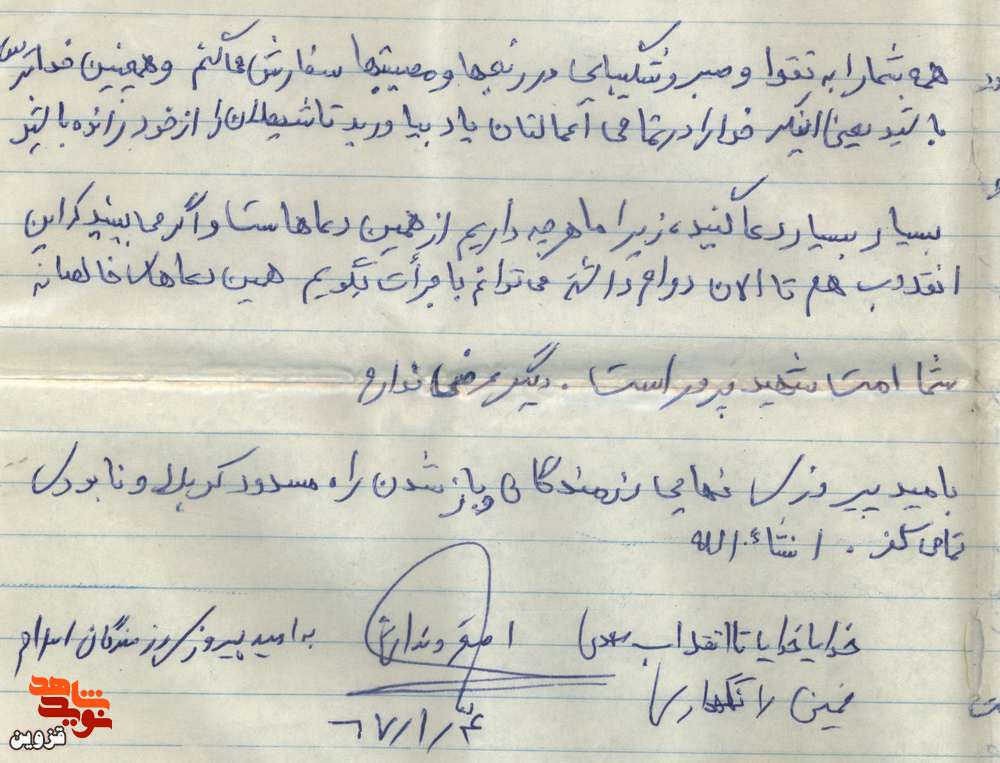 همه شما را به تقوا و صبر و شکیبایی در رنجها و مصیبتها سفارش می‌کنم و همچنین خدا ترس
باشید یعنی اینکه خدا را در تمامی اعمالتان یاد بیاورید تا شیطان را از خود رانده باشید
بسیار بسیار دعا کنید، زیرا ما هر چه داریم از همین دعاهاست و اگر می‌بینید که این
انقلاب هم تا الان دوام داشته می‌توانم با جرأت بگویم همین دعاهای خالصانه
شما امت شهید پرور است. دیگر عرضی ندارم
بامید پیروزی نهایی رزمندگان و باز شدن راه مسدود کربلا و نابودی
تمامی کفر. انشاءالله
خدایا خدایا تا انقلاب مهدی
خمینی را نگهدار
اصغر
به امید پیروزی رزمندگان اسلام
۶۷/۱/۴
نوید شاهد
قزوین